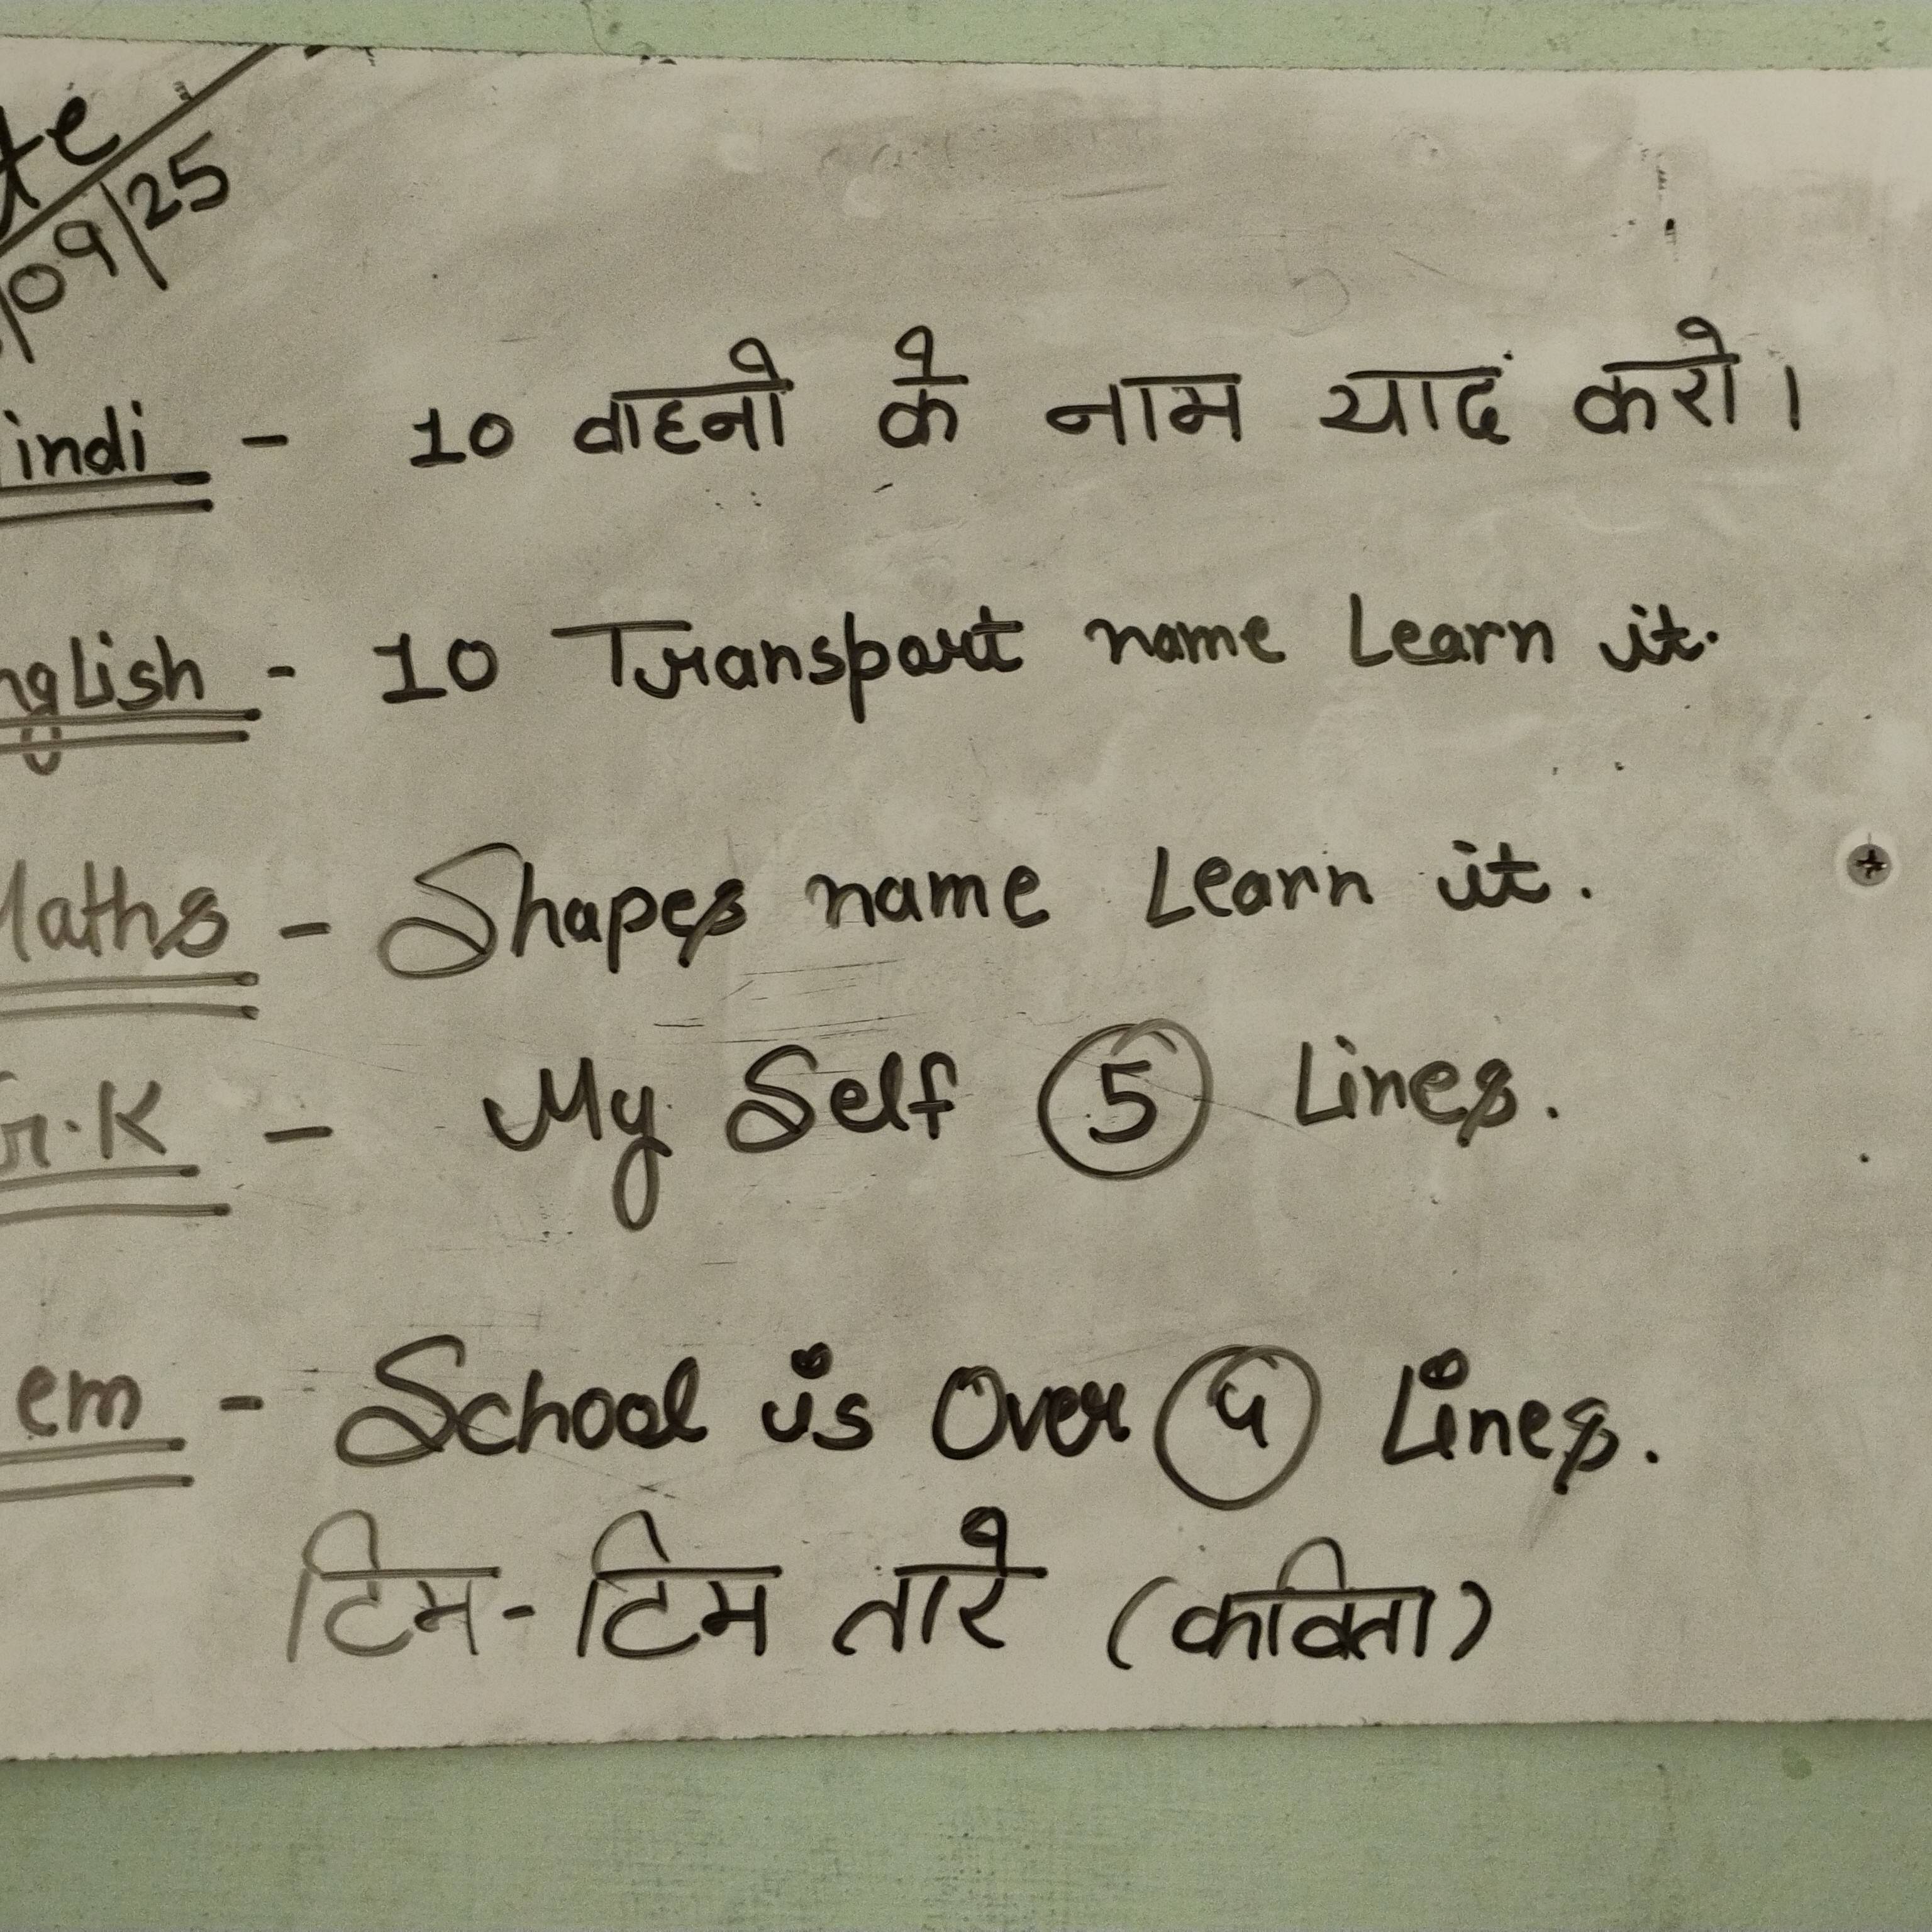 te
/09/25
indi - 10 वाहनो के नाम याद करो।
nglish - 10 Transport name Learn it.
Maths - Shapes name Learn it.
G.K - My Self 5 Lines.
em - School is Over 4 Lines.
टिम-टिम तारे (कविता)